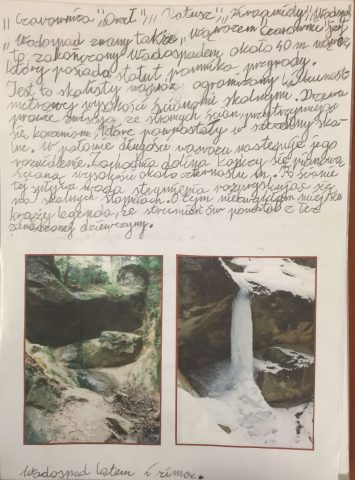 „Czarownica” „Orzeł”, „Ratusz”, „Piramidy” „Wodospad
„Wodospad zwany także „Wąwozem Czarownic” jest
to, zakończony wodospadem około 40 m
który posiada status pomnika przyrody.
Jest to skalisty wąwóz ograniczony
metrowej wysokości ścianami skalnymi. Drzewa
prawie zwisają ze stromych ścian przytrzymując
się korzeniami, które powrastały w szczeliny skal
ne. W połowie długości wąwozu następuje jego
rozwidlenie. Zachodnia dolina kończy się pionową
ścianą wysokości około czternastu m. Po ścianie
tej spływa woda strumienia rozpryskując się
na skalnych stopniach. O tym niezwykłym miejscu
krąży legenda, że strumień ów powstał z łez
zdradzonej dziewczyny.
Wodospad latem i zimą.